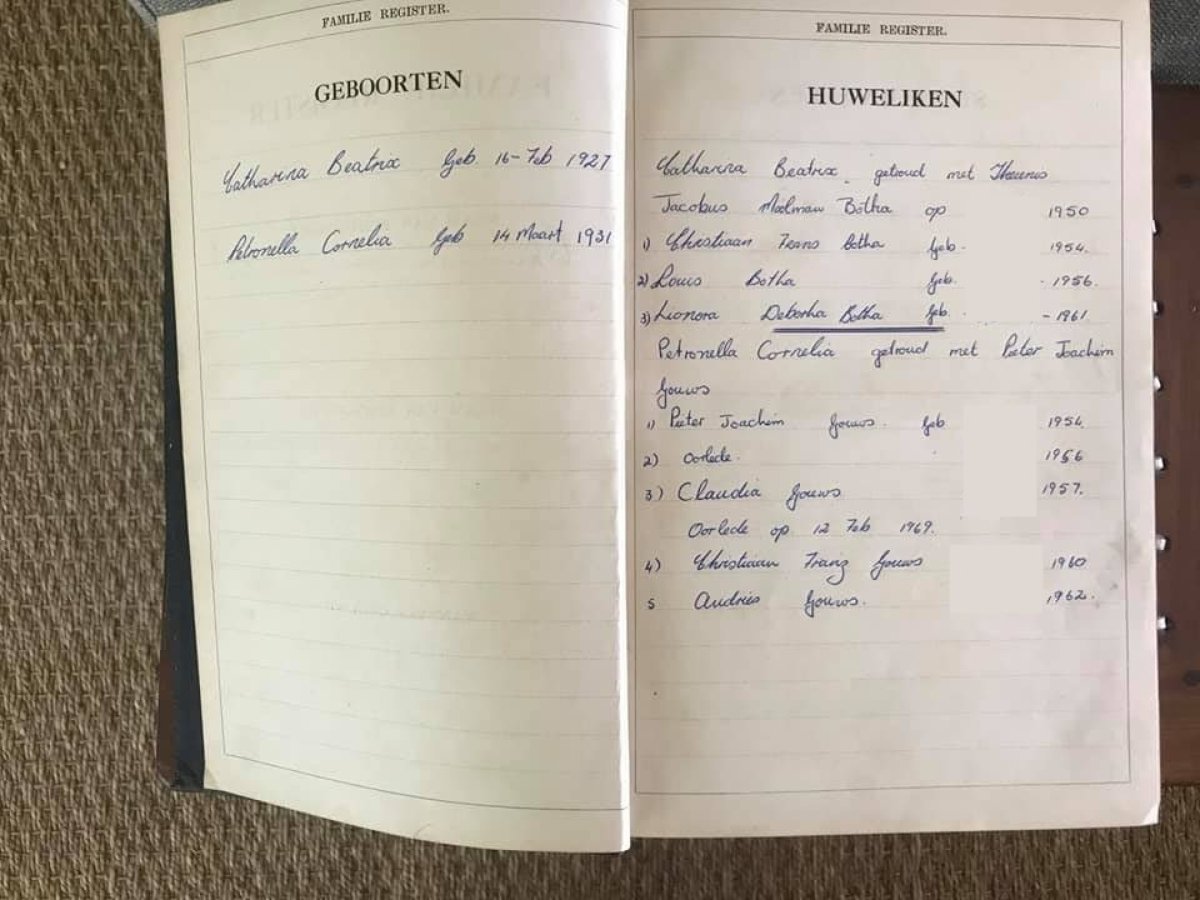 FAMILIE REGISTER.
GEBOORTEN
Catharina Beatrix Geb. 16-Feb 1927
Petronella Cornelia Geb 14 Maart 1931
FAMILIE REGISTER.
HUWELIKEN
Catharina Beatrix getroud met Theunis
Jacobus Botha op 1950
1) Christiaan Frans Botha Geb. 1954.
2) Louis Botha Geb. - 1956.
3) Lionora Deborha Botha Geb. - 1961.
Petronella Cornelia getroud met Pieter Joachim
Gouws
1) Pieter Joachim Gouws. Geb 1954.
2) Oorlede. 1956
3) Claudia Gouws 1957.
Oorlede op 12 Feb 1969.
4) Christiaan Franz Gouws 1960
5 Andries Gouws. 1962.